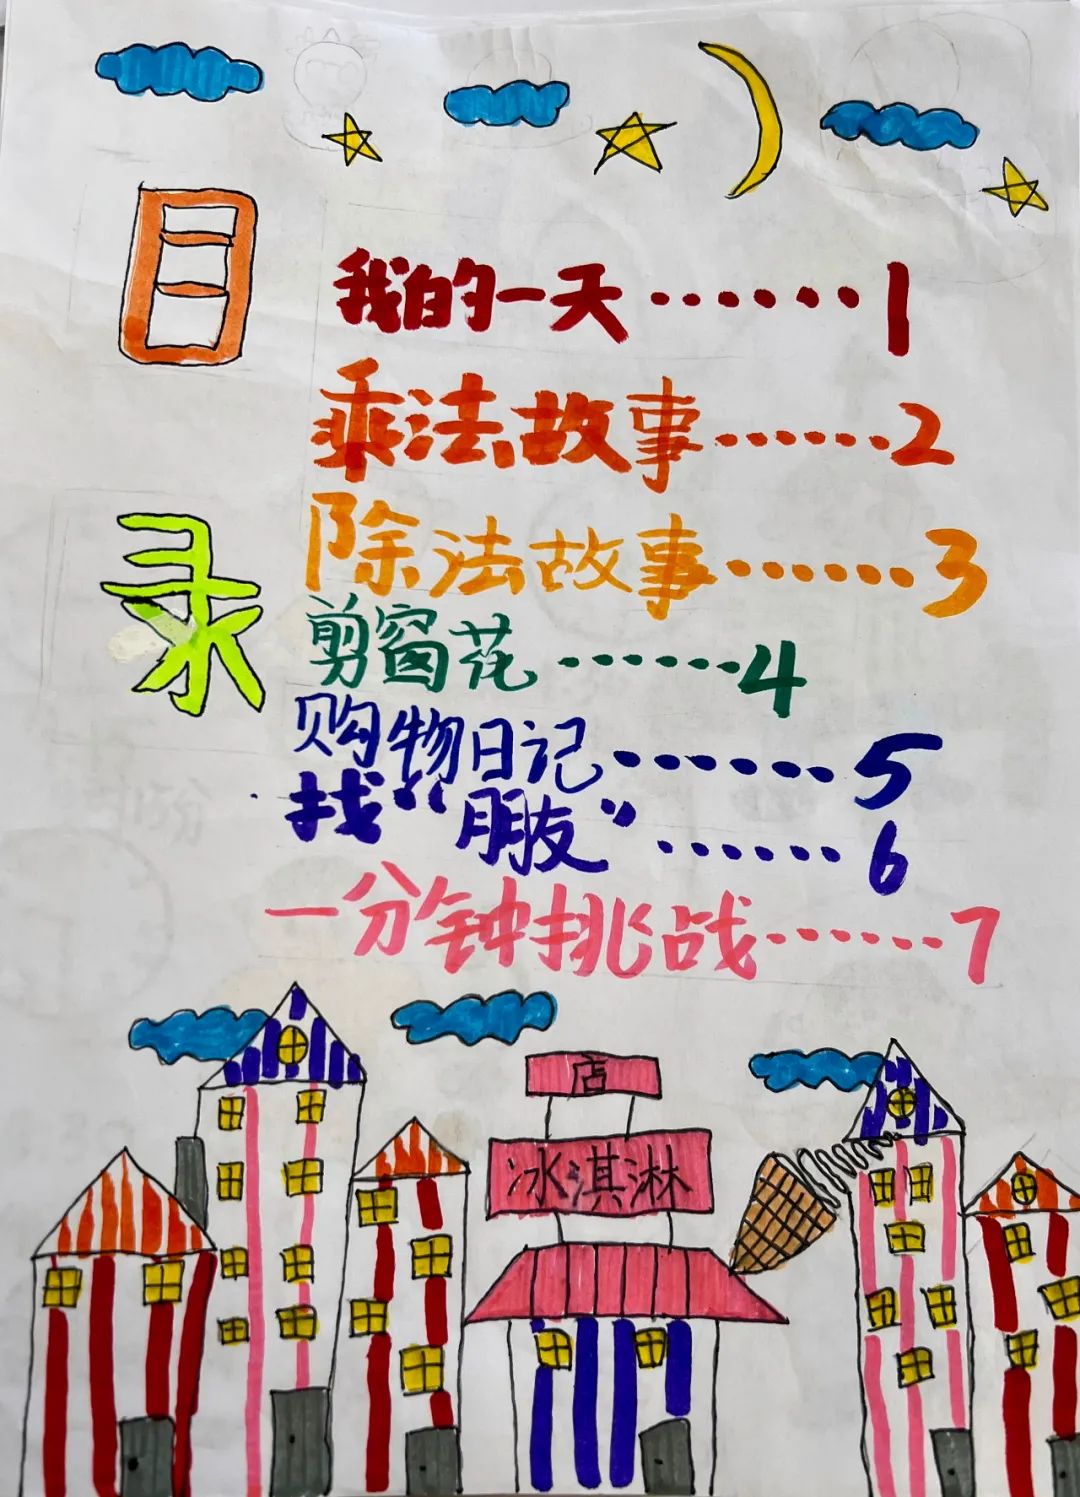 目录
我的一天……1
乘法故事……2
除法故事……3
剪窗花……4
购物日记……5
找“朋友”……6
一分钟挑战……7
店
冰淇淋